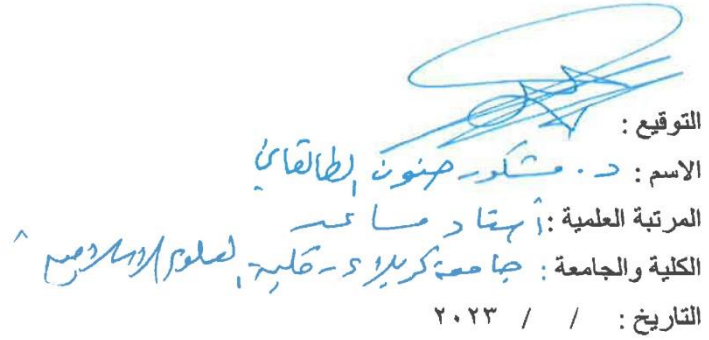 التوقيع :
الاسم : د. مشكور حنون الطالقاني
المرتبة العلمية : أستاذ مساعد
الكلية والجامعة : جامعة كربلاء - كلية العلوم الإسلامية
التاريخ : / / ٢٠٢٣